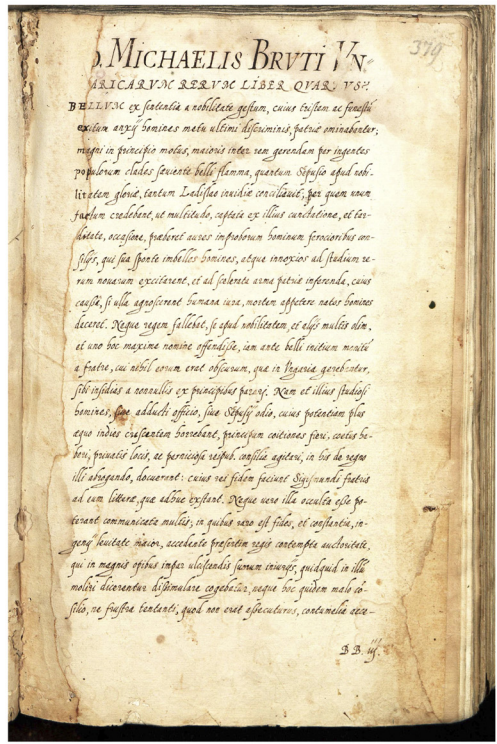 379
MICHAELIS BRVTI VN=
ARICARVM RERVM LIBER QVARTVS.
BELLVM ex sententia a nobilitate gestum, cuius tristem ac funestū
exitum anxij homines metu ultimi discriminis, patriæ ominabantur;
magni in principio motus, maioris inter rem gerendam per ingentes
populorum clades sæuiente belli flamma, quantum Sepusio apud nobi-
litatem gloriæ, tantum Ladislao inuidiæ conciliauit; per quem unum
factum credebant, ut multitudo, captata ex illius cunctatione, et tar-
ditate, occasione, præberet aures improborum hominum ferocioribus con-
silijs, qui sua sponte imbelles homines, atque innoxios ad studium re-
rum nouarum excitarent, et ad scelerata arma patriæ inferenda, cuius
causa, si ulla agnoscerent humana iura, mortem appetere natos homines
deceret. Neque regem fallebat, se apud nobilitatem, et alijs multis olim,
et uno hoc maxime nomine offendisse, iam ante belli initium monitū
a fratre, cui nihil eorum erat obscurum, quæ in Vngaria gerebantur,
sibi insidias a nonnullis ex principibus parari. Nam et illius studiosi
homines, siue adducti officio, siue Sepusij odio, cuius potentiam plus
æquo indies crescentem horrebant, principum coitiones fieri, coetus ha-
beri, priuatis locis, ac perniciosa reipub. consilia agitari, in his de regno
illi abrogando, docuerant: cuius rei fidem faciunt Sigismundi fratris
ad eum litteræ, quæ adhuc exstant. Neque uero illa occulta esse po-
terant communicata multis; in quibus raro est fides, et constantia, in-
genij leuitate maior, accedente præsertim regis contempta auctoritate,
qui in magnis opibus impar ulciscendis suorum iniurijs, quidquid in illū
moliri dicerentur dissimulare cogebatur, neque hoc quidem malo cō-
silio, ne frustra tentanti, quod non erat assecuturus, contumelia acce-
BB. iij.